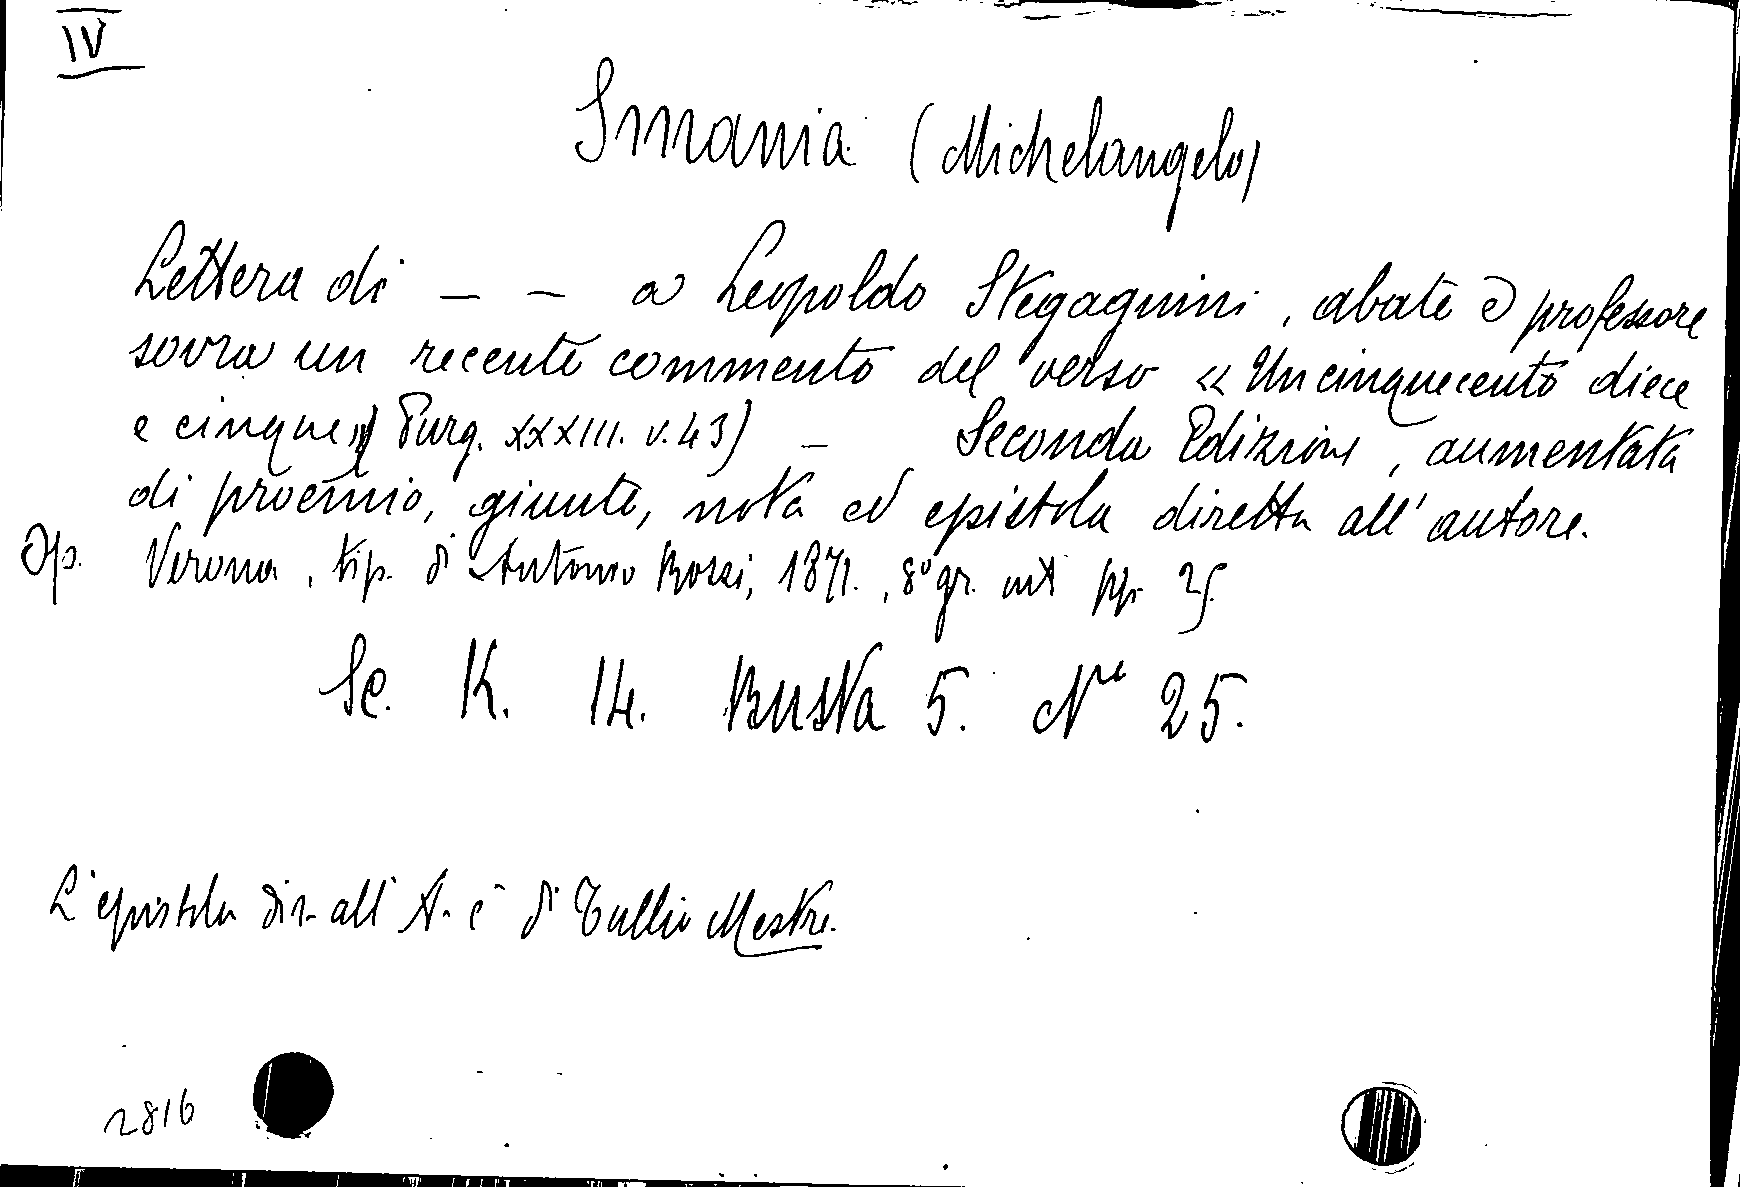 IV
Smania (Michelangelo)
Lettera di – – a Leopoldo Stegagnini, abate e professore
sovra un recente commento del verso « Un cinquecento diece
e cinque» (Purg. XXXIII. v. 43) – Seconda Edizione, aumentata
di proemio, giunte, nota ed epistola diretta all' autore.
Op. Verona, tip. di Antonio Rossi, 1871., 8° gr. ant pp. 25.
Sc. K. 14. Busta 5. N° 25.
L'epistola dir. all' A. è di Tullio Mestre.
2816